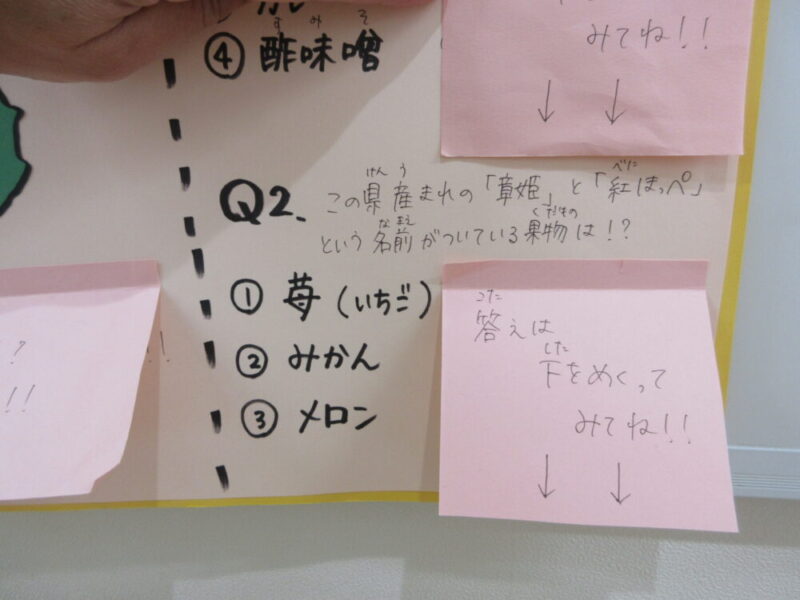 ④ 酢味噌
すみそ
みてね!!
↓ ↓
Q2、この県産まれの「章姫」と「紅ほっぺ」
けん う べに
という名前がついている果物は!?
なまえ くだもの
① 苺(いちご)
② みかん
③ メロン
答えは
こた
下をめくって
した
みてね!!
↓ ↓
?
!!
!!